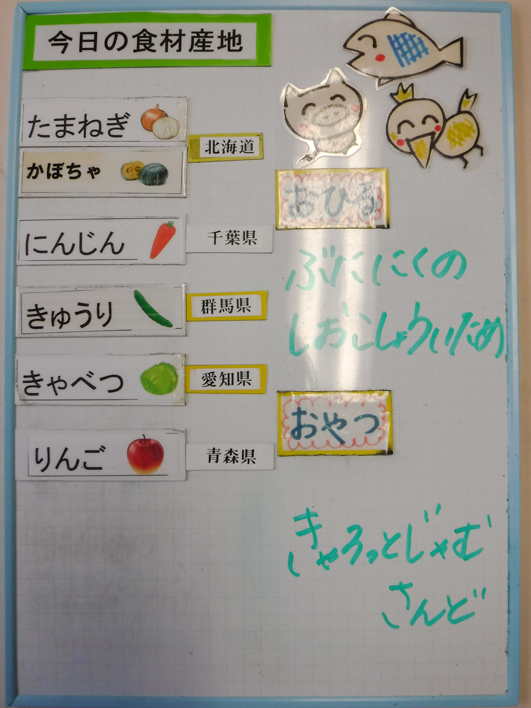 今日の食材産地
たまねぎ
かぼちゃ
北海道
にんじん
千葉県
きゅうり
群馬県
きゃべつ
愛知県
りんご
青森県
おひる
ぶたにくの
しおこしょういため
おやつ
きゃろっとじゃむ
さんど